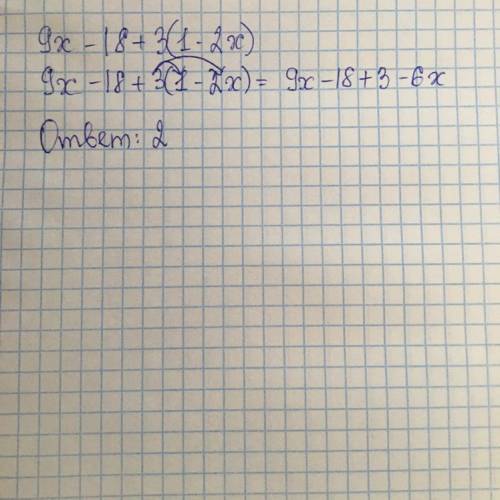 9x - 18 + 3(1 - 2x)
9x - 18 + 3(1 - 2x) = 9x - 18 + 3 - 6x
Ответ: 2